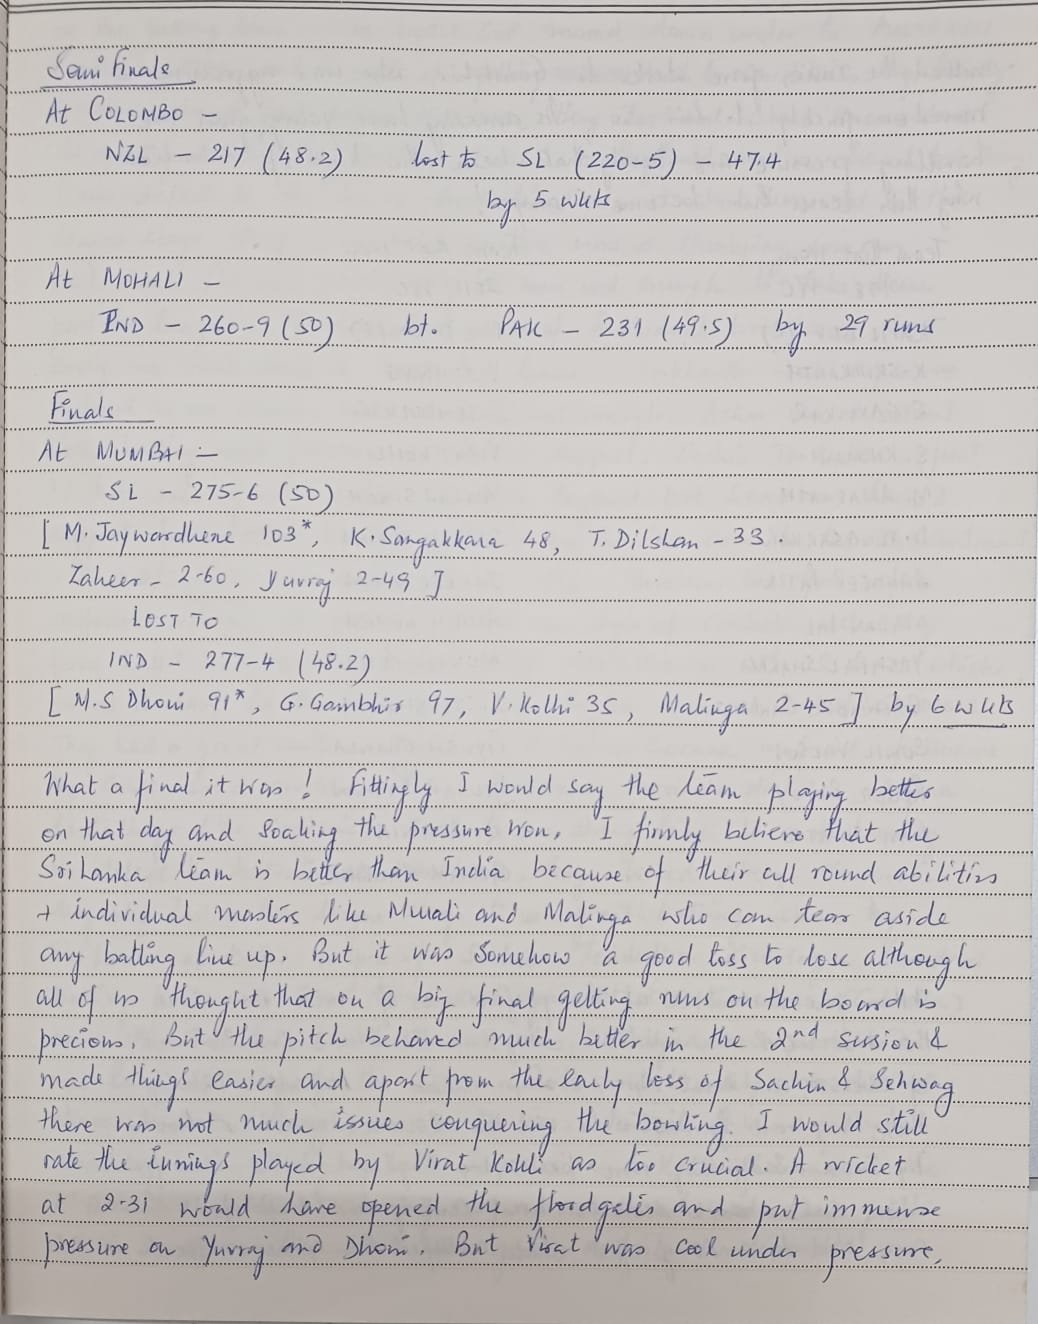 Semi Finals
At COLOMBO -
NZL - 217 (48.2) lost to SL (220-5) - 47.4
by 5 wkts
At MOHALI -
IND - 260-9 (50) bt. PAK - 231 (49.5) by 29 runs
Finals
At MUMBAI :-
SL - 275-6 (50)
[ M. Jaywardhene 103*, K. Sangakkara 48, T. Dilshan - 33.
Zaheer - 2-60, Yuvraj 2-49 ]
LOST TO
IND - 277-4 (48.2)
[ M.S Dhoni 91*, G. Gambhir 97, V. Kolhi 35, Malinga 2-45 ] by 6 wkts
What a final it was! Fittingly I would say the team playing better
on that day and soaking the pressure won, I firmly believe that the
Sri Lanka team is better than India because of their all round abilities
+ individual masters like Murali and Malinga who can tear aside
any batting line up. But it was somehow a good toss to lose although
all of us thought that on a big final getting runs on the board is
precious, But the pitch behaved much better in the 2nd session &
made things easier and apart from the early loss of Sachin & Sehwag
there was not much issues conquering the bowling. I would still
rate the innings played by Virat Kohli as too crucial. A wicket
at 2-31 would have opened the floodgates and put immense
pressure on Yuvraj and Dhoni. But Virat was cool under pressure,